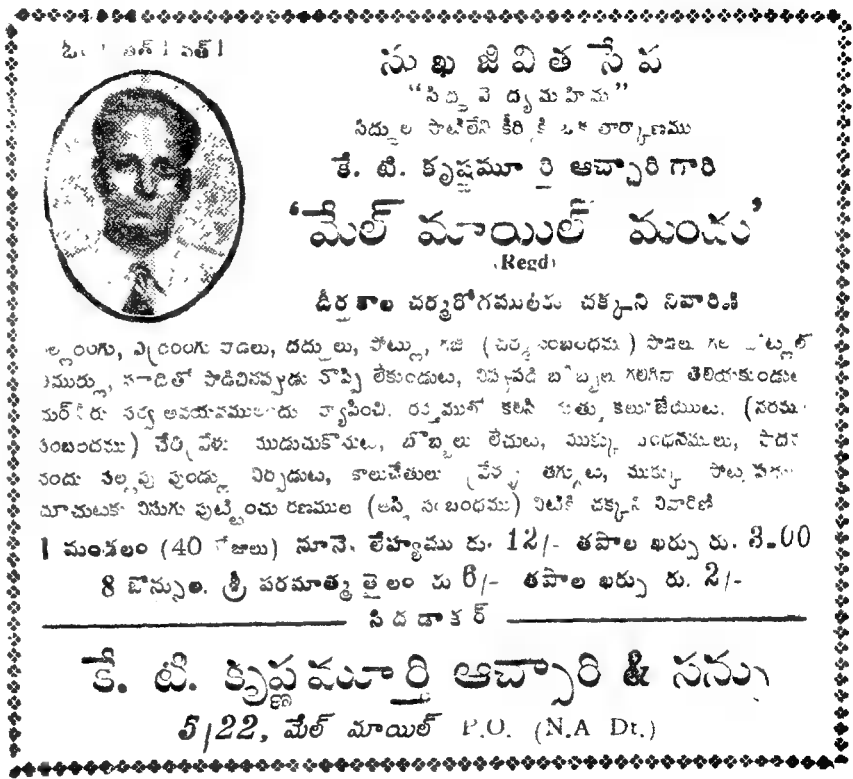 సుఖ జీవిత సేవ
"సిద్ధవైద్యమహిమ"
సిద్ధుల సాటిలేని కీర్తికి ఒక తార్కాణము
కే. టి. కృష్ణమూర్తి ఆచ్చారి గారి
'మేల్ మాయిల్ మందు'
(Regd)
దీర్ఘకాల చర్మరోగములకు చక్కని నివారిణి
ఎర్రరంగు పొడలు, దద్దులు, పోట్లు, గజి (చర్మసంబంధము) పొడలు గల చోట్లల్లో
తిమురు, సూదితో పొడిచినప్పుడు నొప్పి లేకుండుట, నిప్పుపడి బొబ్బలు గలిగినా తెలియకుండుట
సర్వ అవయవములందు వ్యాపించి. రక్తములో కలసి మత్తు కలుగజేయుట. (నరము
సంబందము) చేతివేళ్లు ముడుచుకొనుట, బొబ్బలు లేచుట, ముక్కు బంధనములు, పాద
నందు నల్లపు పుండ్లు ఏర్పడుట, కాలుచేతులు వ్రేళ్ళు తగ్గుట, ముక్కు పోటు
మాచుటకు విసుగు పుట్టించు రణముల (అస్థి సంబంధము) వీటికి చక్కని నివారిణి
1 మండలం (40 రోజులు) నూనె, లేహ్యము రు. 12/- తపాల ఖర్చు రు. 3-00
8 ఔన్సుల. శ్రీ పరమాత్మ తైలం రు 6/- తపాల ఖర్చు రు. 2/-
సిద డాకర్
కే. టి. కృష్ణమూర్తి ఆచ్చారి & సన్సు
5/22, మేల్ మాయిల్ P.O. (N.A Dt.)